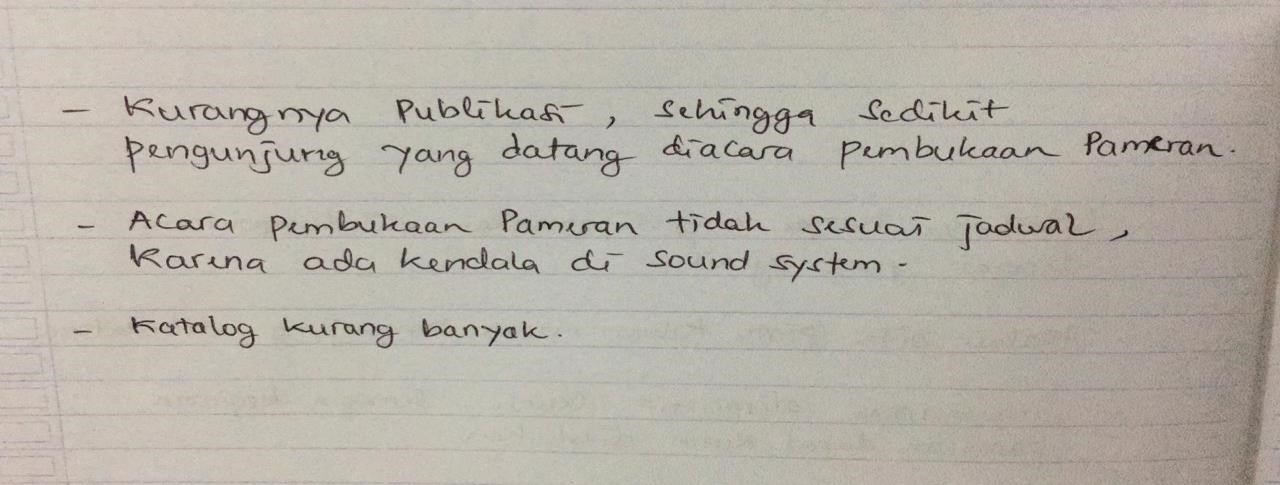 - Kurangnya Publikasi, sehingga sedikit
pengunjung yang datang diacara pembukaan Pameran.
- Acara pembukaan Pameran tidak sesuai jadwal,
Karena ada kendala di sound system.
- Katalog kurang banyak.